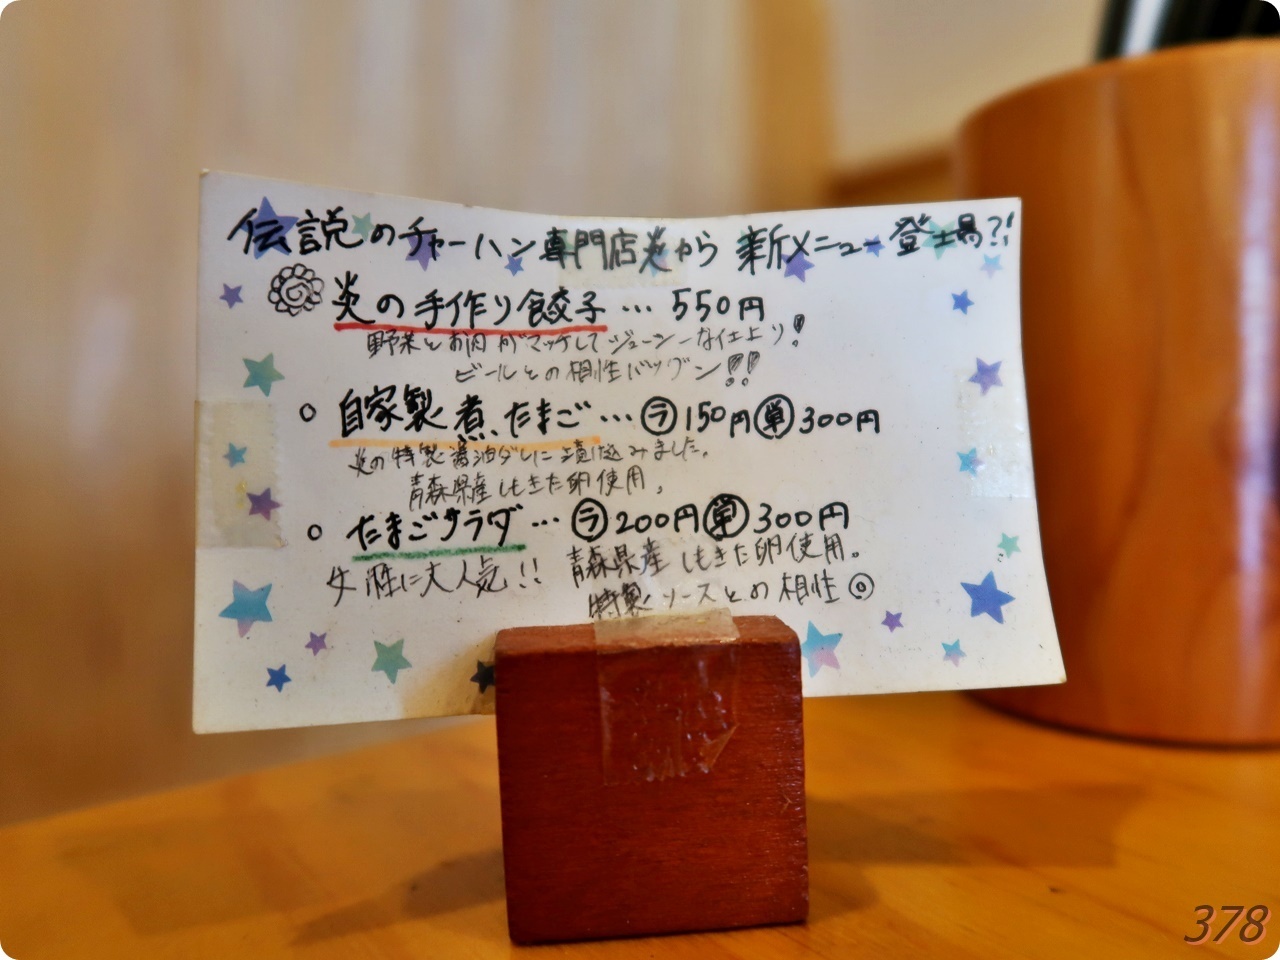 伝説のチャーハン専門店炎から 新メニュー登場?!
炎の手作り餃子…550円
野菜とお肉がマッチしてジューシーな仕上り!
ビールとの相性バツグン!!
○ 自家製煮たまご…ラ150円単300円
炎の特製醤油ダレに漬け込みました。
青森県産しもきた卵使用。
○ たまごサラダ…ラ200円単300円
女性に大人気!! 青森県産しもきた卵使用。
特製ソースとの相性◎
378